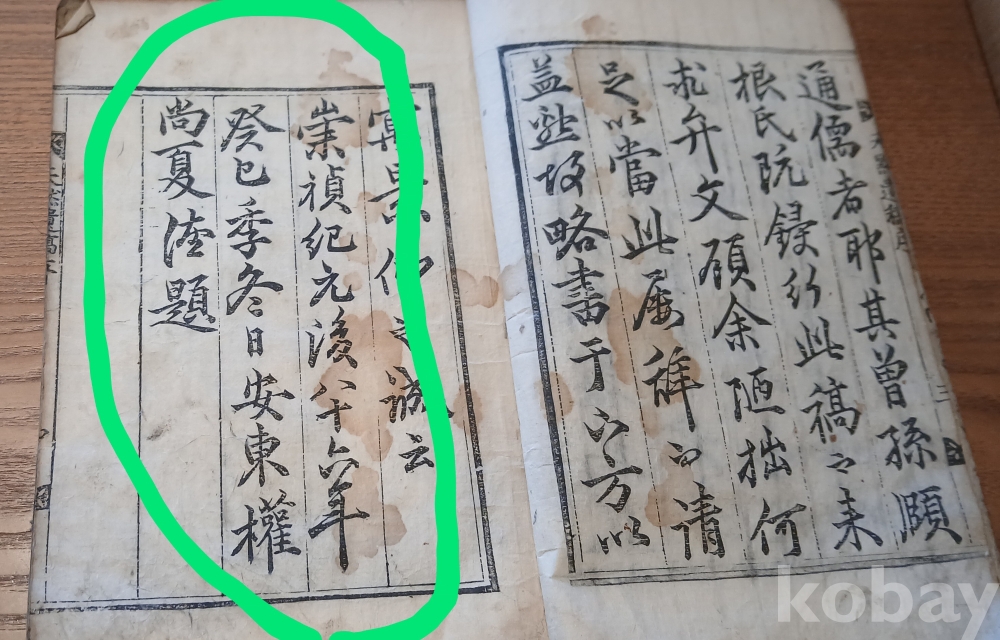 通儒者耶其曾孫頤
根氏鋟行此稿来
求弁文顧余陋拙何
足以當此屡辭請
益故略書于方以
寓景仰之誠云
崇禎紀元後八十六年
癸巳季冬日安東權
尚夏題
kobay